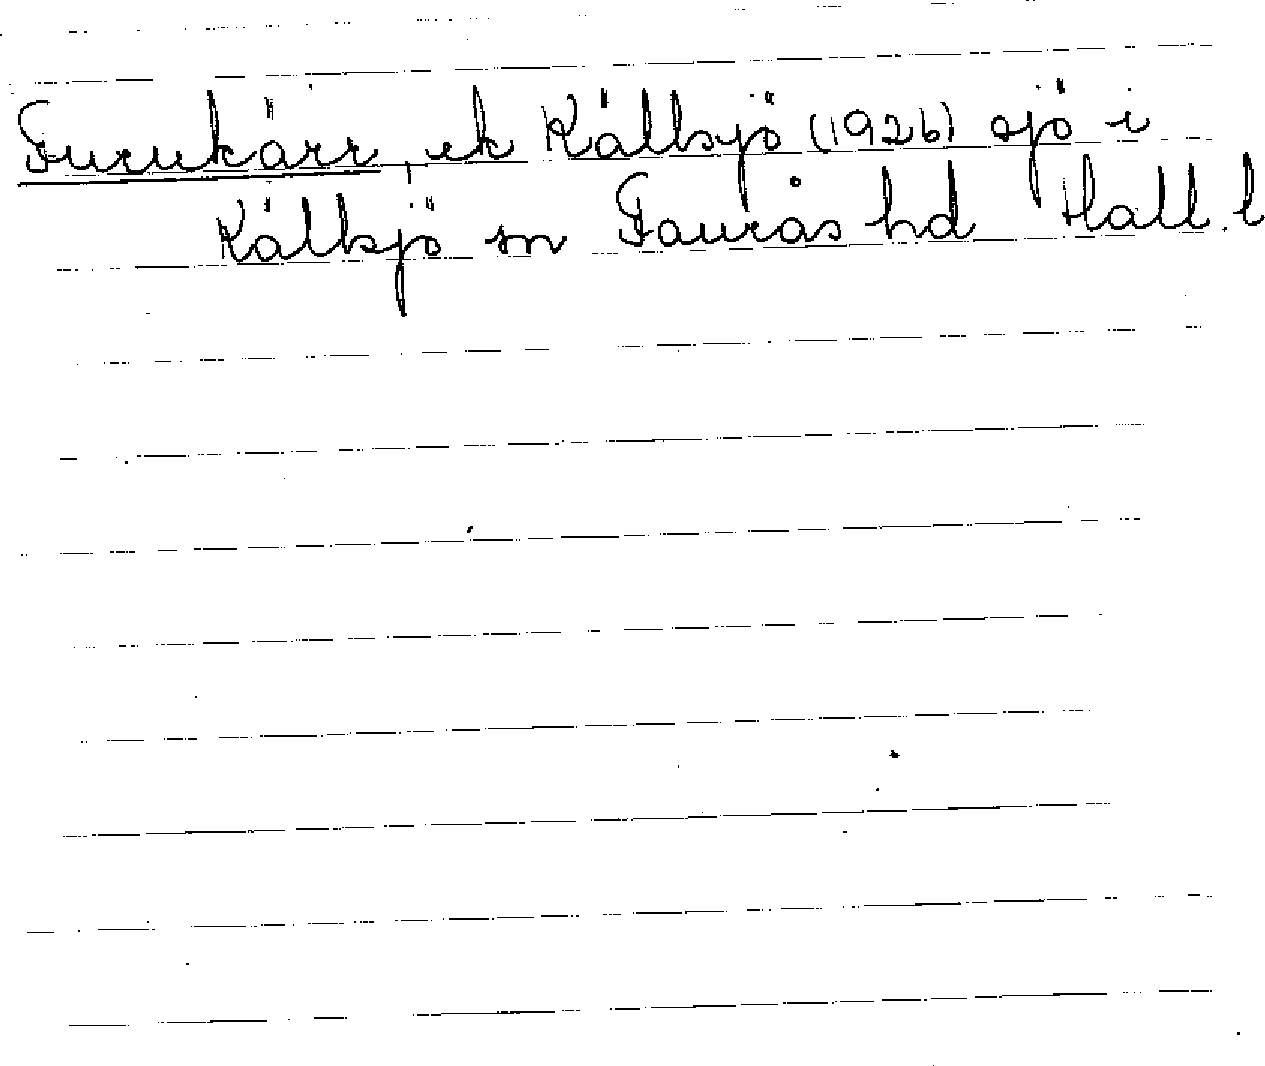 Furukärr, ek Källsjö (1926) sjö i
Källsjö sn Faurås hd Hall. l